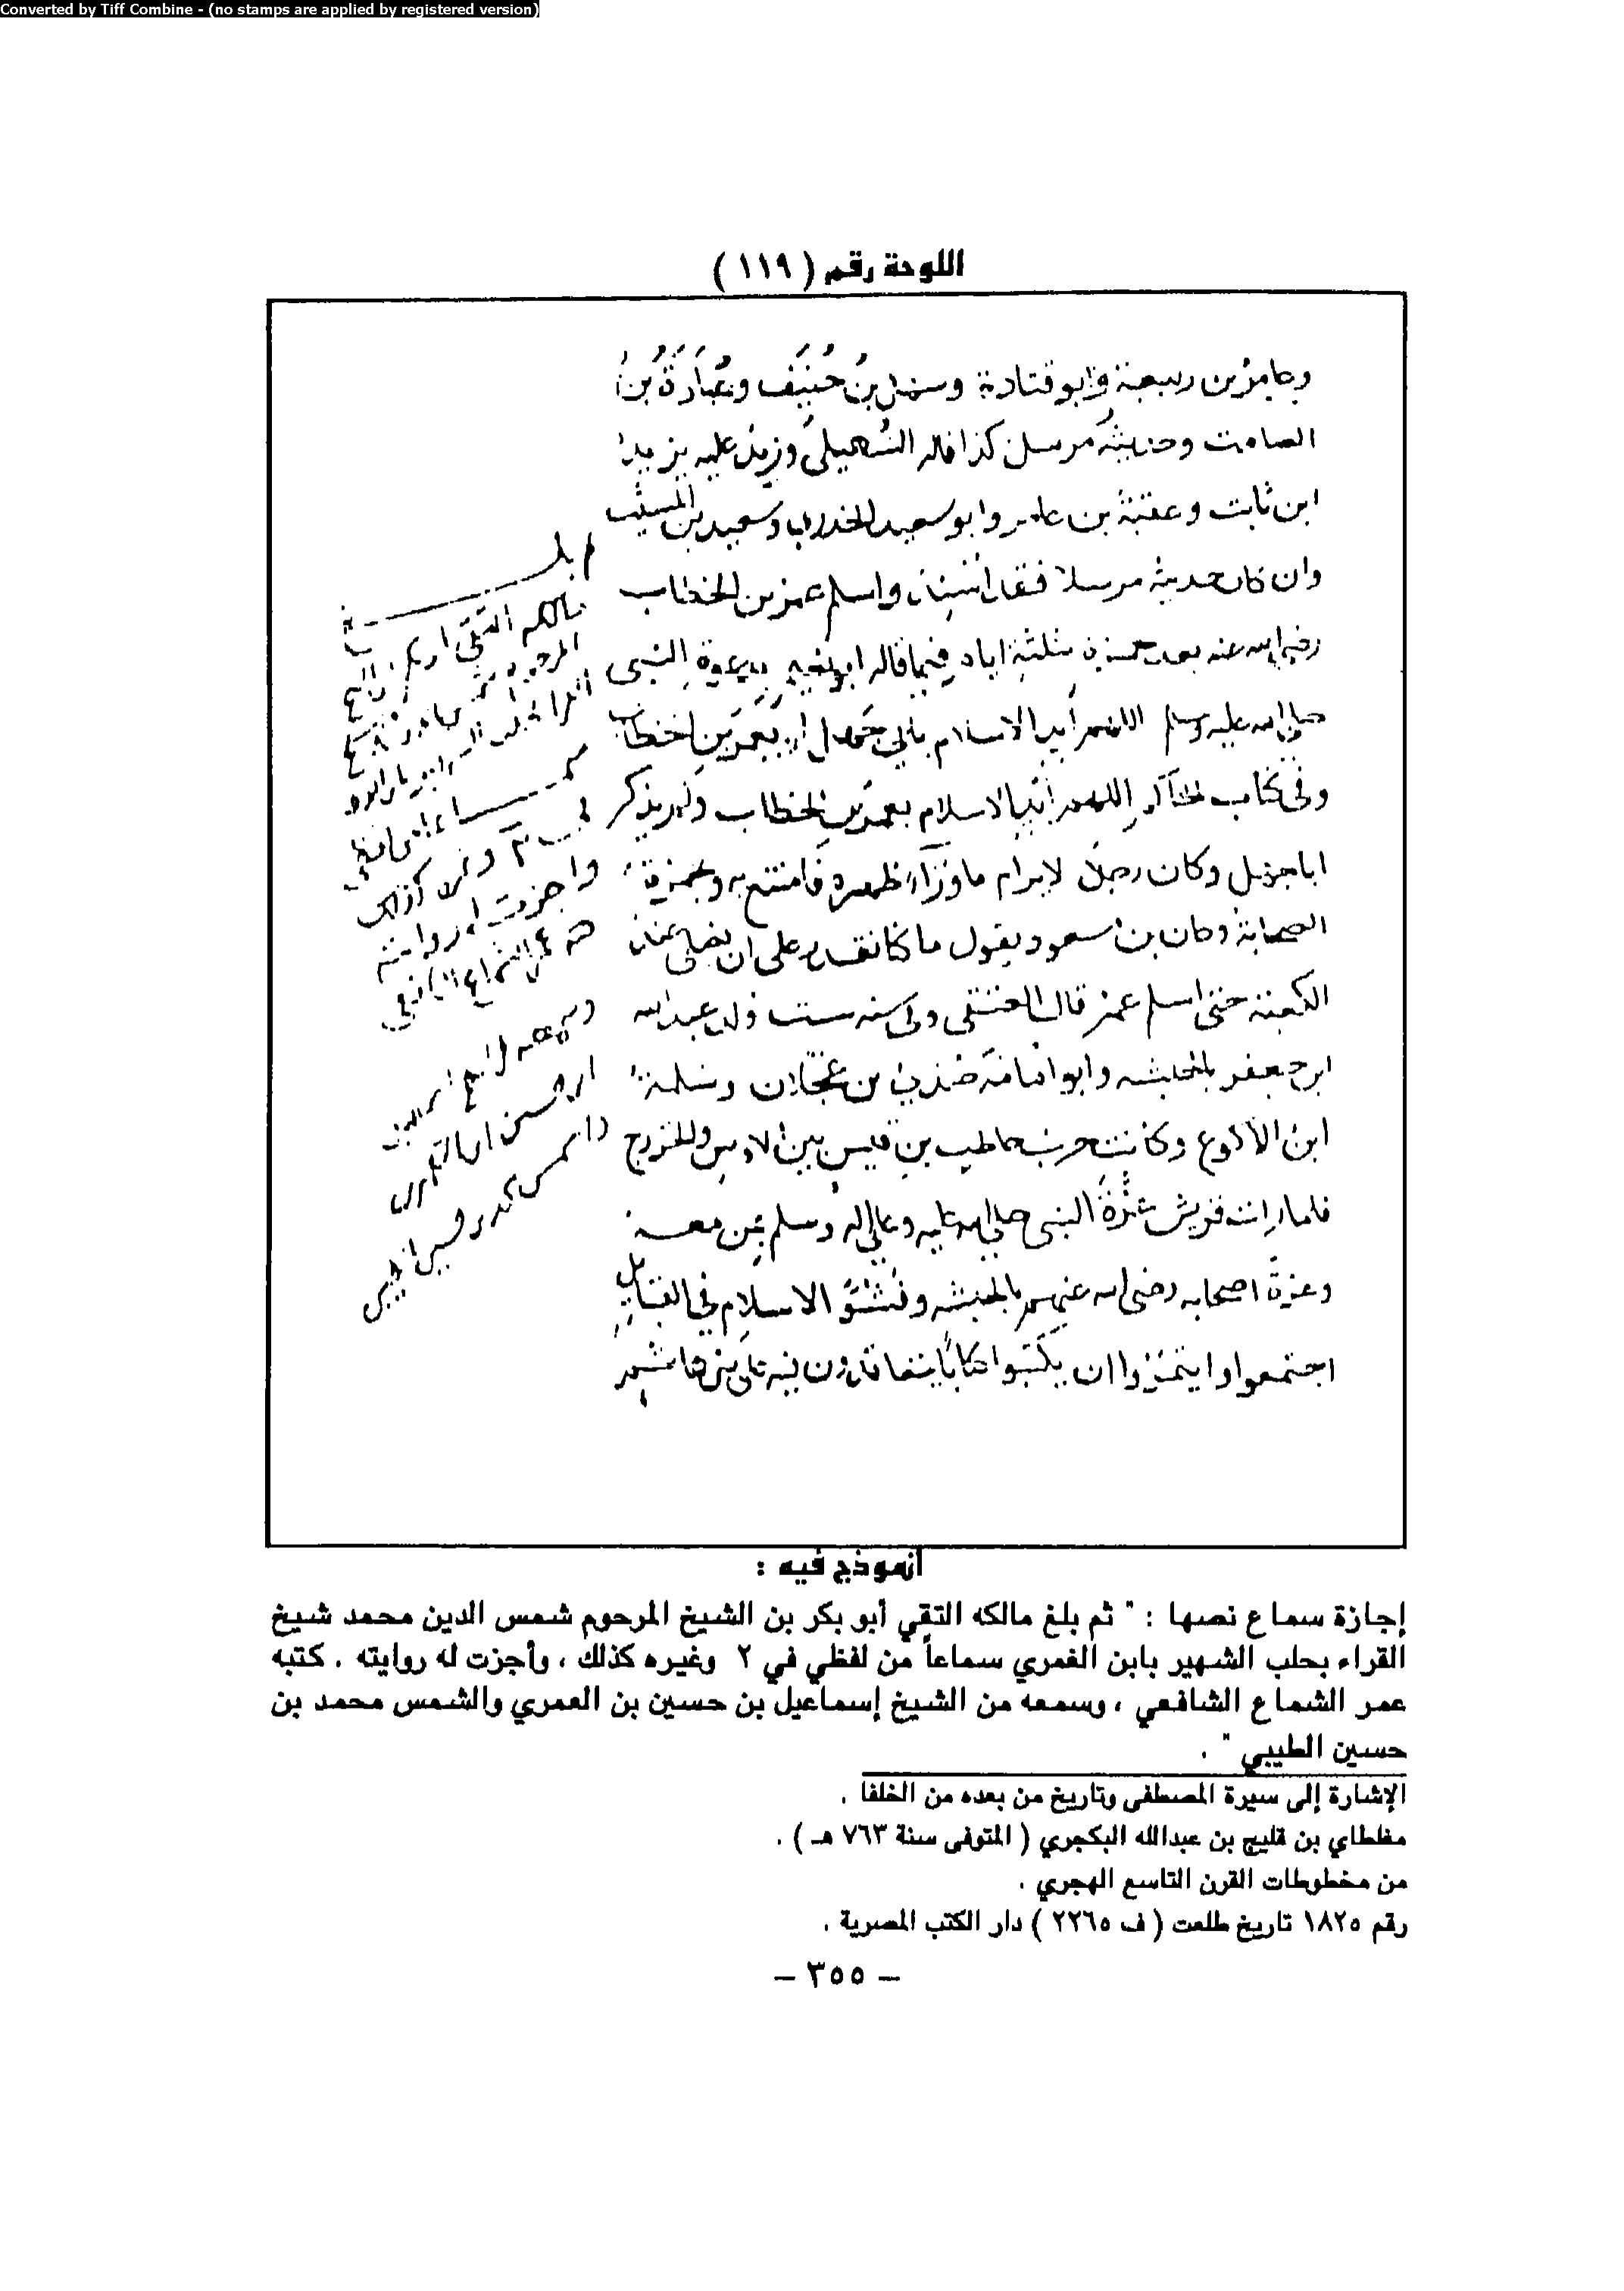 Converted by Tiff Combine - (no stamps are applied by registered version)
اللوحة رقم ( ١١٩ )
وعامر بن ربيعة وابو قتادة وسهل بن حُنَيف وعُبَادَةُ بنُ
الصامت وحديثه مرسل كذا قاله السُّهيلي وزيد عليه
ابن ثابت وعقبة بن عامر وابو سعيد الخدري وسعيد بن المسيب
وان كان حديثه مرسلا فقال واسلم عمر بن الخطاب
رضي الله عنه بعد حمزة بثلثة ايام فيما قاله ابو نعيم بدعوة النبي
صلى الله عليه وسلم اللهم أيد الاسلام بابي جهل او بعمر بن الخطاب
وفي كتاب اللهم أيد الاسلام بعمر بن الخطاب ولم يذكر
ابا جهل وكان رجلا لا يرام ما وراء ظهره فامتنع به وبحمزة
الصحابة وكان بن مسعود يقول ما كنا نقدر على ان نصلي عند
الكعبة حتى اسلم عمر قال العتقي وفي سنه ست ولد عبد الله
ابن جعفر بالحبشه وابو امامة صدي بن عجلان وسلمة
ابن الاكوع وكانت حرب حاطب بن قيس بين الاوس والخزرج
فلما رات قريش عزة النبي صلى الله عليه وعلى اله وسلم بمن معه
وعزة اصحابه رضي الله عنهم بالحبشه وفُشُوّ الاسلام في القبايل
اجتمعوا وايتمروا ان يكتبوا كتابًا يتعاقدون فيه على بني هاشم
مالكه التقي
واجزت له روايته
أنموذج فيه :
إجازة سماع نصها : " ثم بلغ مالكه التقي أبو بكر بن الشيخ المرحوم شمس الدين محمد شيخ
القراء بحلب الشهير بابن الغمري سماعاً من لفظي في ٢ وغيره كذلك ، وأجزت له روايته . كتبه
عمر الشماع الشافعي ، وسمعه من الشيخ إسماعيل بن حسين بن العمري والشمس محمد بن
حسين الطيبي " .
الإشارة إلى سيرة المصطفى وتاريخ من بعده من الخلفا .
مغلطاي بن قليج بن عبدالله البكجري ( المتوفى سنة ٧٦٣ هـ ) .
من مخطوطات القرن التاسع الهجري .
رقم ١٨٢٥ تاريخ طلعت ( ف ٢٢٦٥ ) دار الكتب المصرية .
– ٣٥٥ –